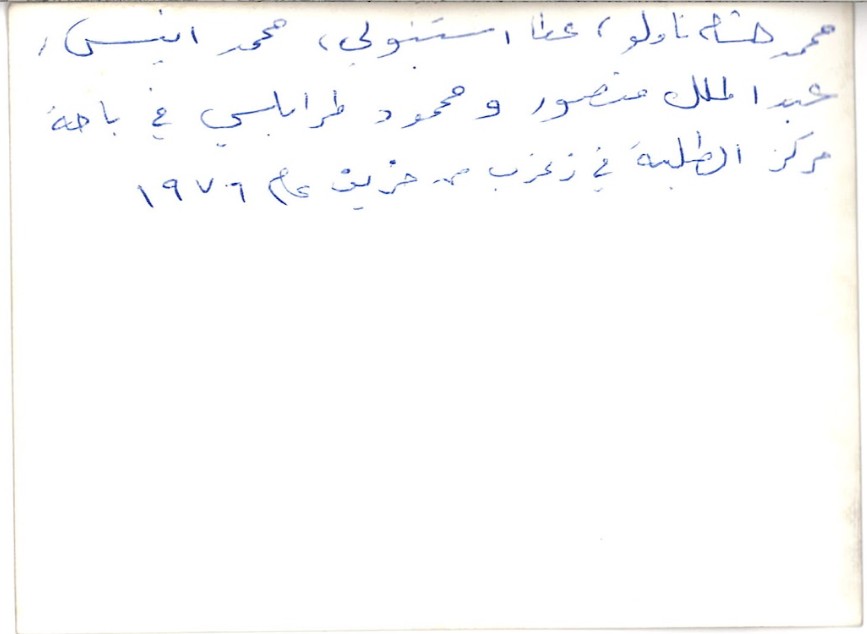 محمد هشام ناولو، عطا استنبولي، محمد انيس،
عبد الملك منصور و محمود طرابلسي في باحة
مركز الطلبة في زغرب خريف عام ١٩٧٦